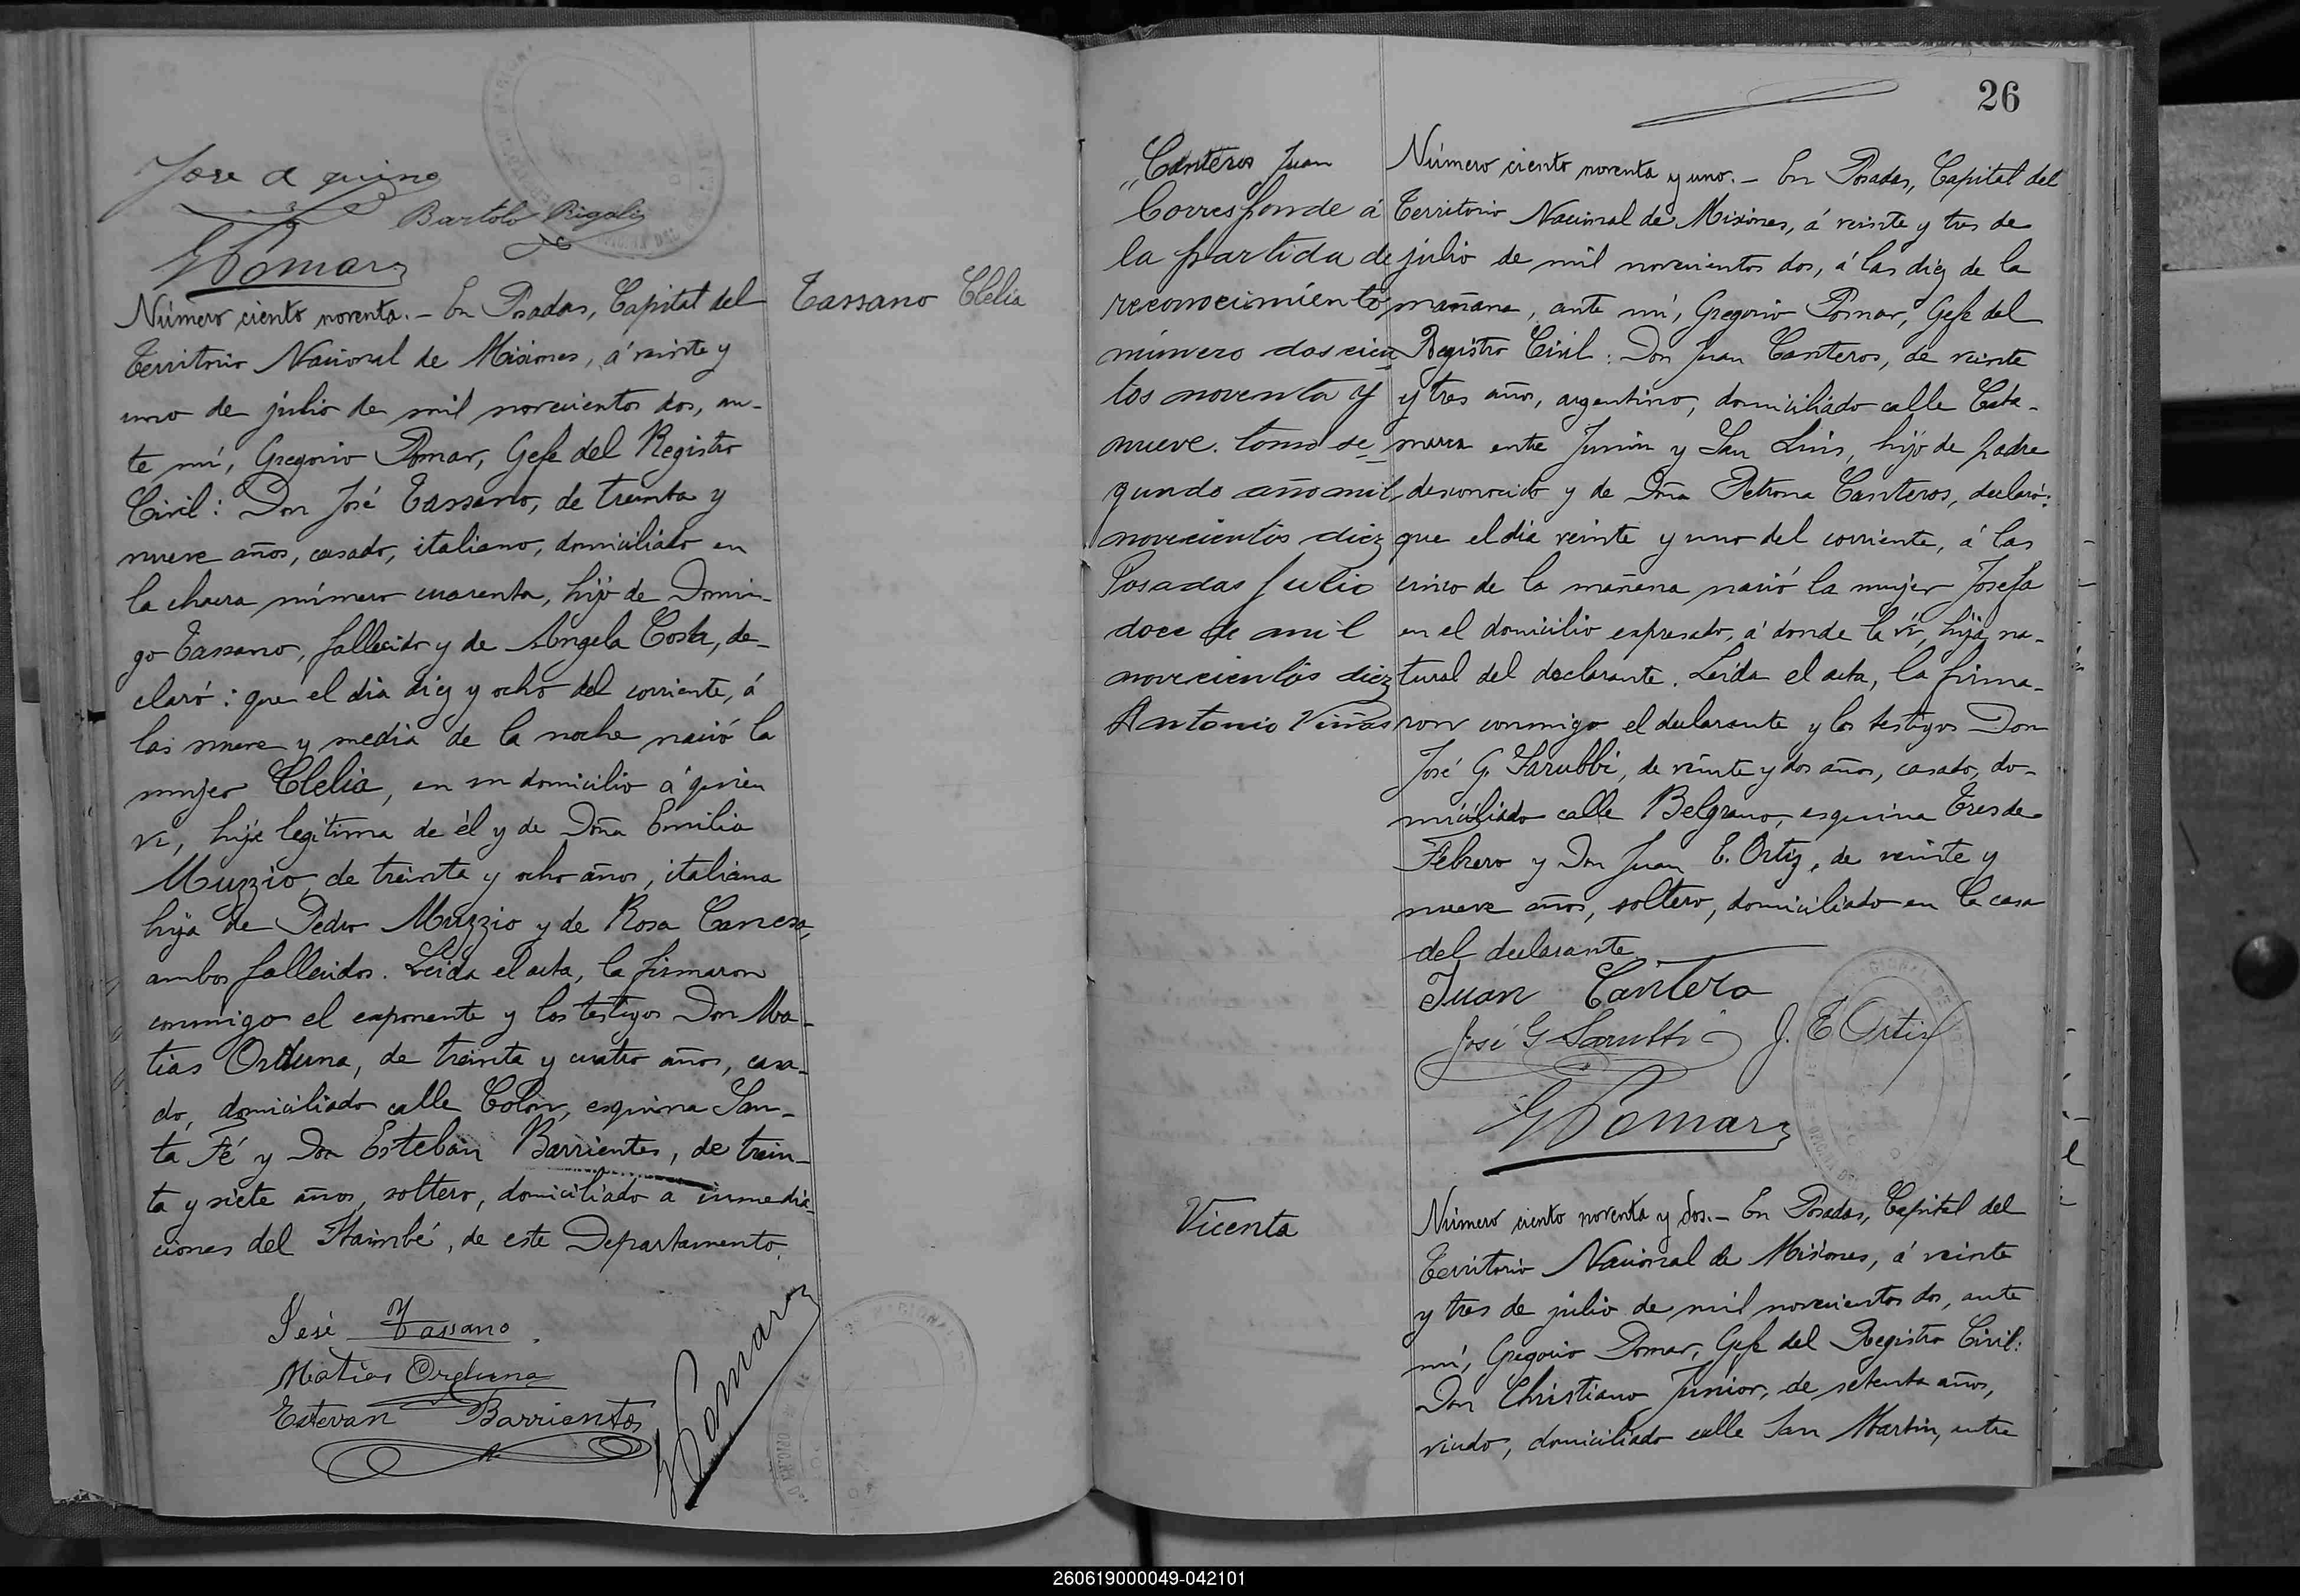 Jose a quino
Bartolo Rigolis
G Pomar
Número ciento noventa. – En Posadas, Capital del
Territorio Nacional de Misiones, á veinte y
uno de julio de mil novecientos dos, an-
te mí, Gregorio Pomar, Gefe del Registro
Civil: Don José Tassano, de treinta y
nueve años, casado, italiano, domiciliado en
la chacra número cuarenta, hijo de Domin-
go Tassano, fallecido y de Angela Costa, de-
claró: que el dia diez y ocho del corriente, á
las nueve y media de la noche nació la
mujer Clelia, en su domicilio á quien
vi, hija legitima de él y de Doña Emilia
Muzzio, de treinta y ocho años, italiana
hija de Pedro Muzzio y de Rosa Canesa,
ambos fallecidos. Leida el acta, la firmaron
conmigo el exponente y los testigos Don Ma-
tias Orduna, de treinta y cuatro años, casa-
do, domiciliado calle Colón, esquina San-
ta Fé y Don Esteban Barrientes, de trein-
ta y siete años, soltero, domiciliado a inmedia-
ciones del Itaimbé, de este Departamento.
José Tassano
Matias Orduna
Estevan Barrientos
G Pomar
Tassano Clelia
26
„Canteros Juan
Corresponde á
la partida de
reconocimiento
número doscien
tos noventa y
nueve. tomo se
gundo año mil
novecientos diez
Posadas Julio
doce de mil
novecientos diez
Antonio Viñas
Número ciento noventa y uno. – En Posadas, Capital del
Territorio Nacional de Misiones, á veinte y tres de
julio de mil novecientos dos, á las diez de la
mañana, ante mí, Gregorio Pomar, Gefe del
Registro Civil: Don Juan Canteros, de veinte
y tres años, argentino, domiciliado calle Cata-
marca entre Junin y San Luis, hijo de padre
desconocido y de Doña Petrona Canteros, declaró:
que el dia veinte y uno del corriente, á las
cinco de la mañana nació la mujer Josefa
en el domicilio expresado, á donde la vi, hija na-
tural del declarante. Leida el acta, la firma-
ron conmigo el declarante y los testigos Don
José G. Sarubbi, de veinte y dos años, casado, do-
miciliado calle Belgrano, esquina Tres de
Febrero y Don Juan E. Ortiz, de veinte y
nueve años, soltero, domiciliado en la casa
del declarante.
Juan Cantero
José G Sarubbi
J. E Ortiz
G Pomar
Vicenta
Número ciento noventa y dos. – En Posadas, Capital del
Territorio Nacional de Misiones, á veinte
y tres de julio de mil novecientos dos, ante
mí, Gregorio Pomar, Gefe del Registro Civil:
Don Christiano Junior, de setenta años,
viudo, domiciliado calle San Martin, entre
260619000049-042101